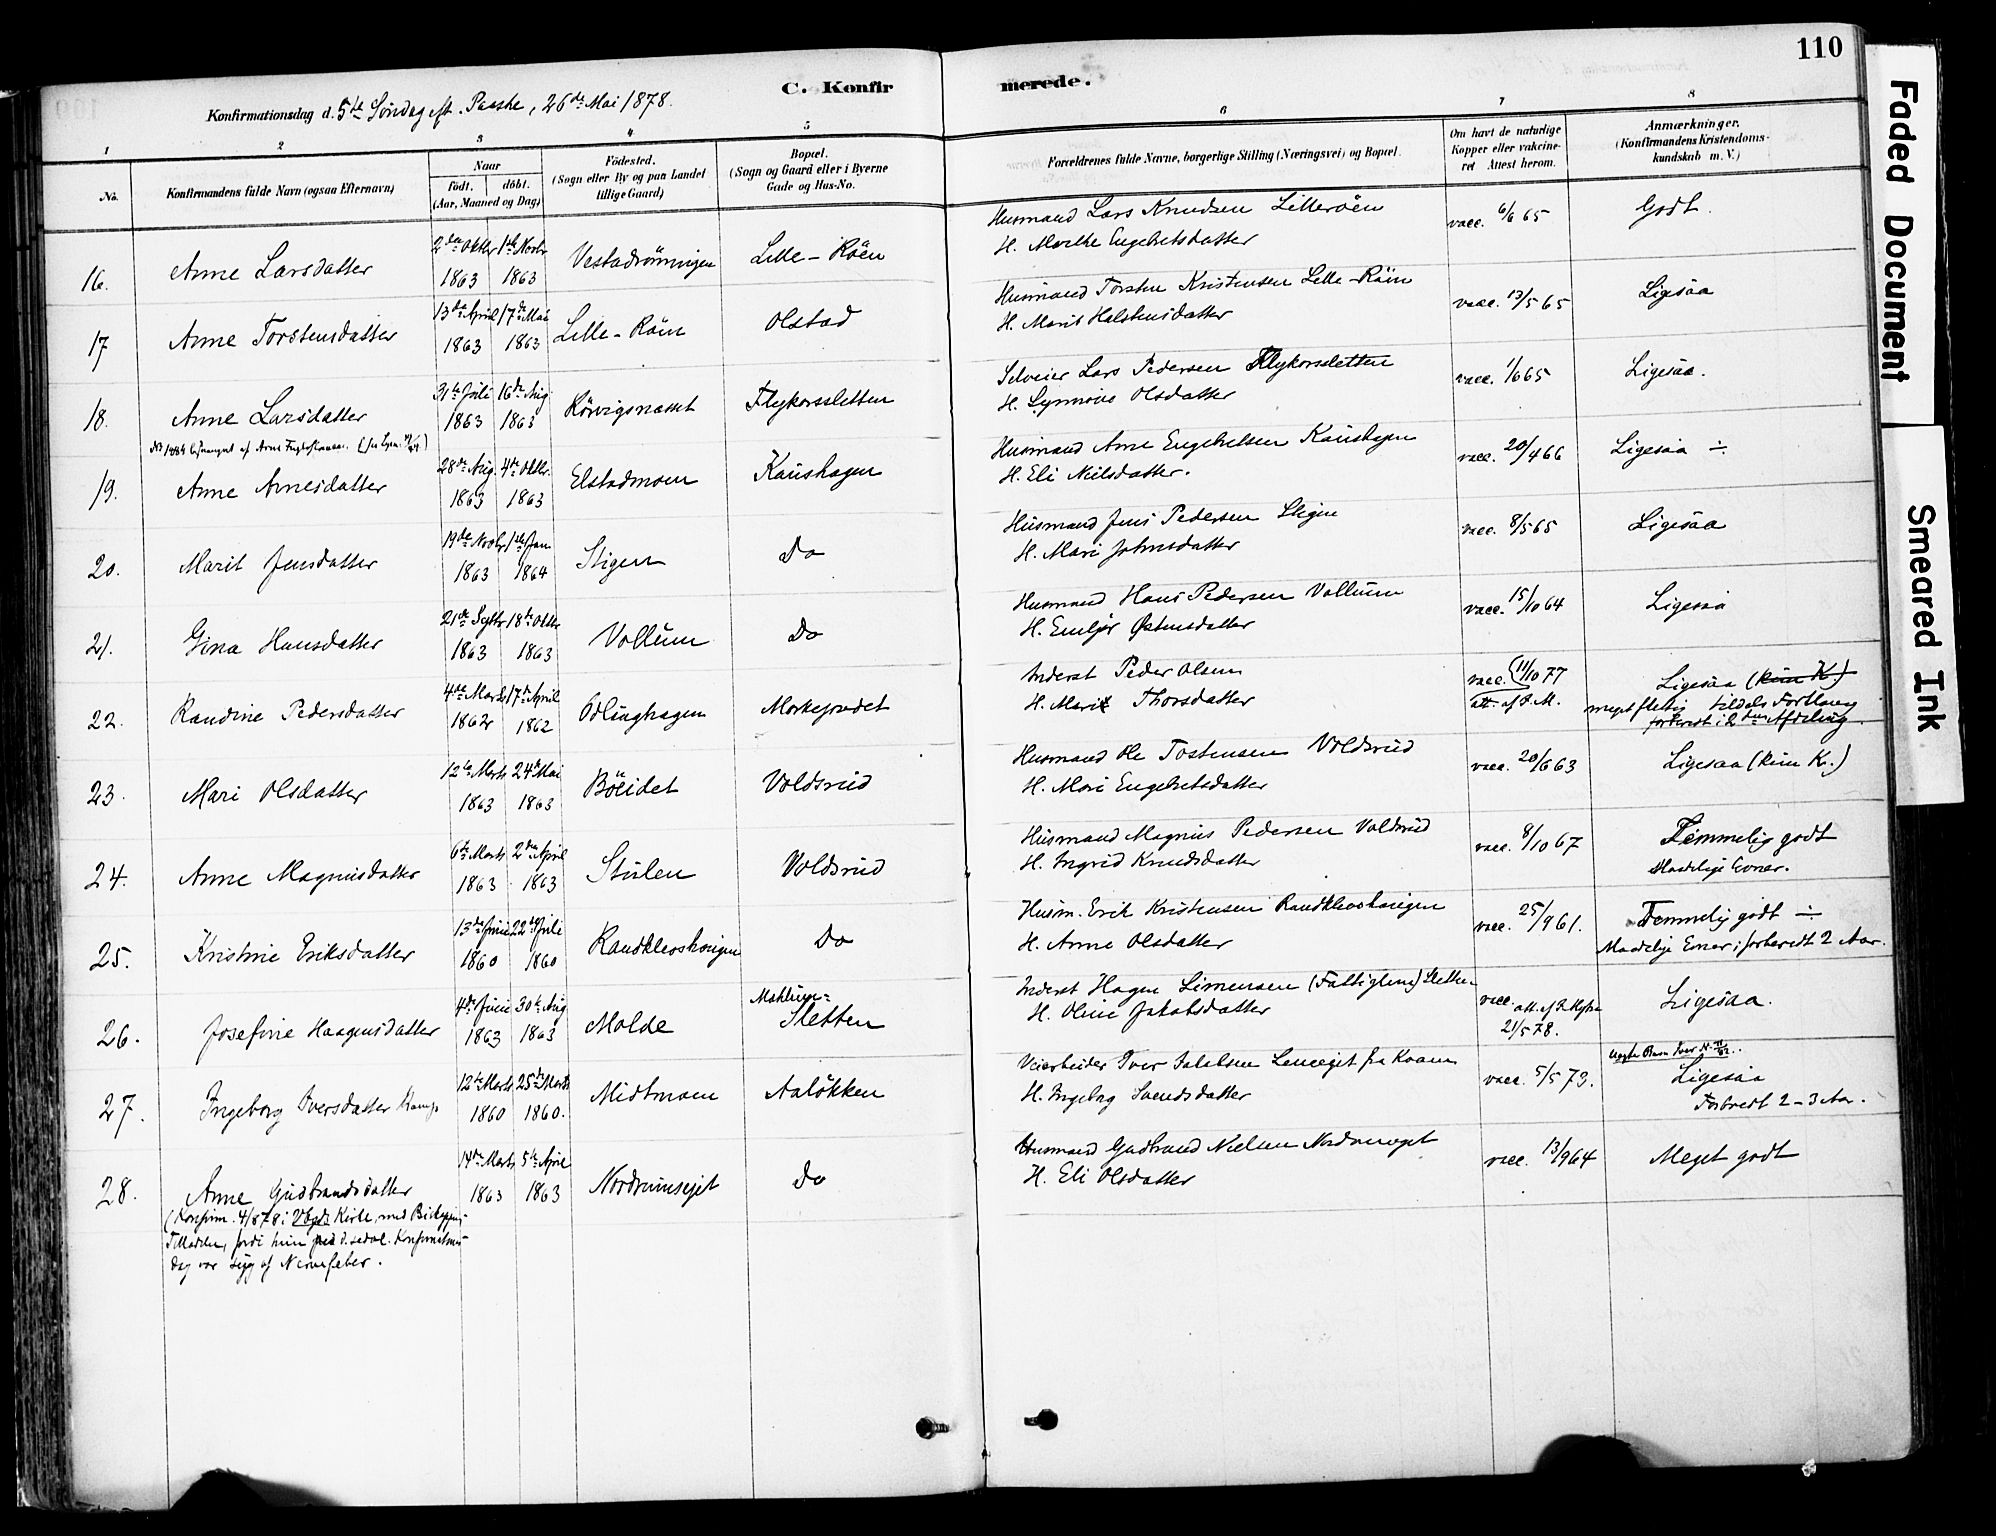 110
C. Konfir
merede.
Konfirmationsdag d. 5te Søndag eft. Paaske, 26de Mai 1878.
1 2 3 4 5 6 7 8
No.
Konfirmandens fulde Navn (ogsaa Efternavn)
Naar
født. døbt.
(Aar, Maaned og Dag)
Fødested.
(Sogn eller By og paa Landet
tillige Gaard)
Bopæl.
(Sogn og Gaard eller i Byerne
Gade og Hus-No.
Forældrenes fulde Navne, borgerlige Stilling (Næringsvei) og Bopæl.
Om havt de naturlige
Kopper eller vakcine-
ret Attest herom.
Anmærkninger.
(Konfirmandens Kristendoms-
kundskab m. V.)
Husmand Lars Knudsen Lilleröen vacc. 6/6 65 Godt.
16. Anne Larsdatter 2den Oktbr 1ste Novbr Vestadrönningen Lille-Röen H. Marthe Engebretsdatter
1863 1863
Husmand Torsten Kristensen Lille-Röen vacc. 13/5 65 Ligesaa
17 Anne Torstensdatter 13de April 17de Mai Lille-Röen Olstad H. Marit Halstensdatter
1863 1863
Selveier Lars Pedersen Flykorssletten vacc. 1/6 65 Ligesaa.
18. Anne Larsdatter 31te Juli 16de Aug Rörvignæsset Flykorssletten H. Synnöve Olsdatter
1863 1863
Husmand Arne Engebretsen Kaushagen vacc. 20/4 66 Ligesaa ÷
19. Anne Arnesdatter 28de Aug. 4de Oktbr. Elstadmoen Kaushagen H. Eli Nielsdatter.
1863 1863
Husmand Jens Pedersen Stigen vacc. 8/5 65 Ligesaa
20. Marit Jensdatter 19de Novbr 1ste Jan Stigen Do H. Mari Johnsdatter
1863 1864
Husmand Hans Pedersen Vollum vacc. 15/10 64 Ligesaa
21. Gina Hansdatter 21de Septbr 18de Oktbr Vollum Do H. Embjör Østensdatter
1863 1863
Inderst Peder Olsen vacc. (11/10 77 Ligesaa (kun K)
22. Randine Pedersdatter 4de Marts 17de April Odlinghagen Morkeprodet H. Marit Thorsdatter att. af S. M. meget flittig tildels Fortlaug
1862 1862 forberedt i 2den Afdeling
Husmand Ole Tostensen Voldsrud vacc. 20/6 63 Ligesaa (kun K.)
23. Mari Olsdatter 12te Marts 24de Mai Böeidet Voldsrud H. Mari Engebretsdatter
1863 1863
Husmand Magnus Pedersen Voldsrud vacc. 8/10 67 Temmelig godt
24. Anne Magnusdatter 6te Marts 2den April Stulen Voldsrud H. Ingrid Knudsdatter Maadelige Evner.
1863 1863
Husm. Erik Kristensen Randklevshaugen vacc. 25/9 61. Temmelig godt ÷
25. Kristine Eriksdatter 13de Juni 22de Juli Randklevshaugen Do H. Anne Olsdatter Maadelige Evner; forberedt 2 Aar.
1860 1860
Inderst Hagen Simensen (Fattiglem) Sletten vacc. att. af 21/5 78. Ligesaa.
26. Josefine Haagensdatter 4de Juni 30te Aug Molde Sletten H. Oline Jakobsdatter
1863 1863
Veiarbeider Iver Jakobsen fra Kvam vacc. 5/5 73. Ligesaa
27. Ingeborg Iversdatter Kamp 12te Marts 25de Marts Midtmoen Aalökken H. Ingebrg Svendsdatter Forbredt 2-3 Aar.
1860 1860.
Husmand Gudbrand Nielsen vacc. 13/9 64 Meget godt
28. Anne Gudbrandsdatter 14de Marts 5te April Nordrumseiet Do H. Eli Olsdatter
1863 1863
(Konfirm. 4/8 78 i Kirke, med
Tilladelse, fordi hun ved d. sedvl. Konfirmations-
dag var syg af Nervefeber.
Faded Document
Smeared Ink